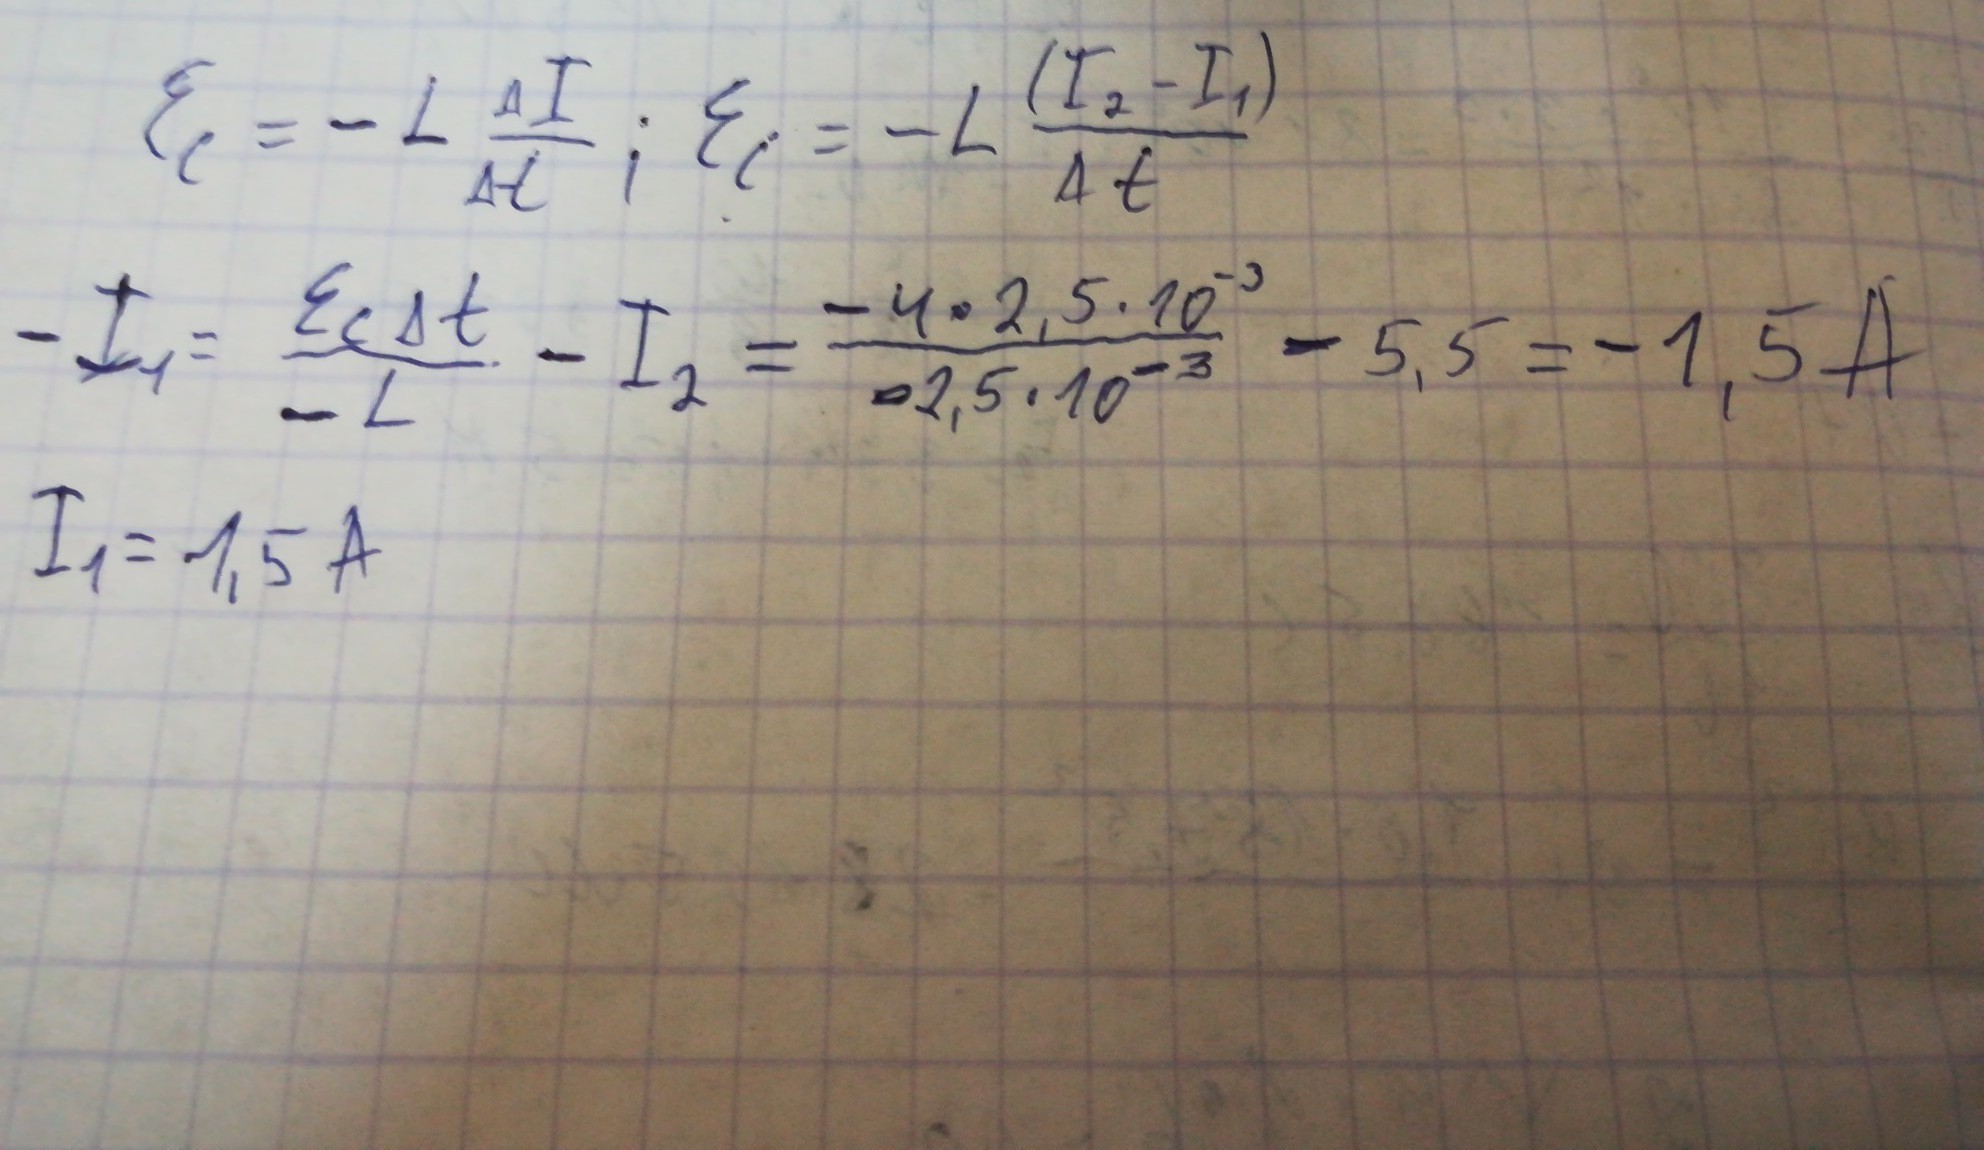 Ei = -L ΔI/Δt ; Ei = -L (I₂-I₁)/Δt
-I₁ = EiΔt/-L - I₂ = -4·2,5·10⁻³/-2,5·10⁻³ - 5,5 = -1,5 A
I₁ = 1,5 A